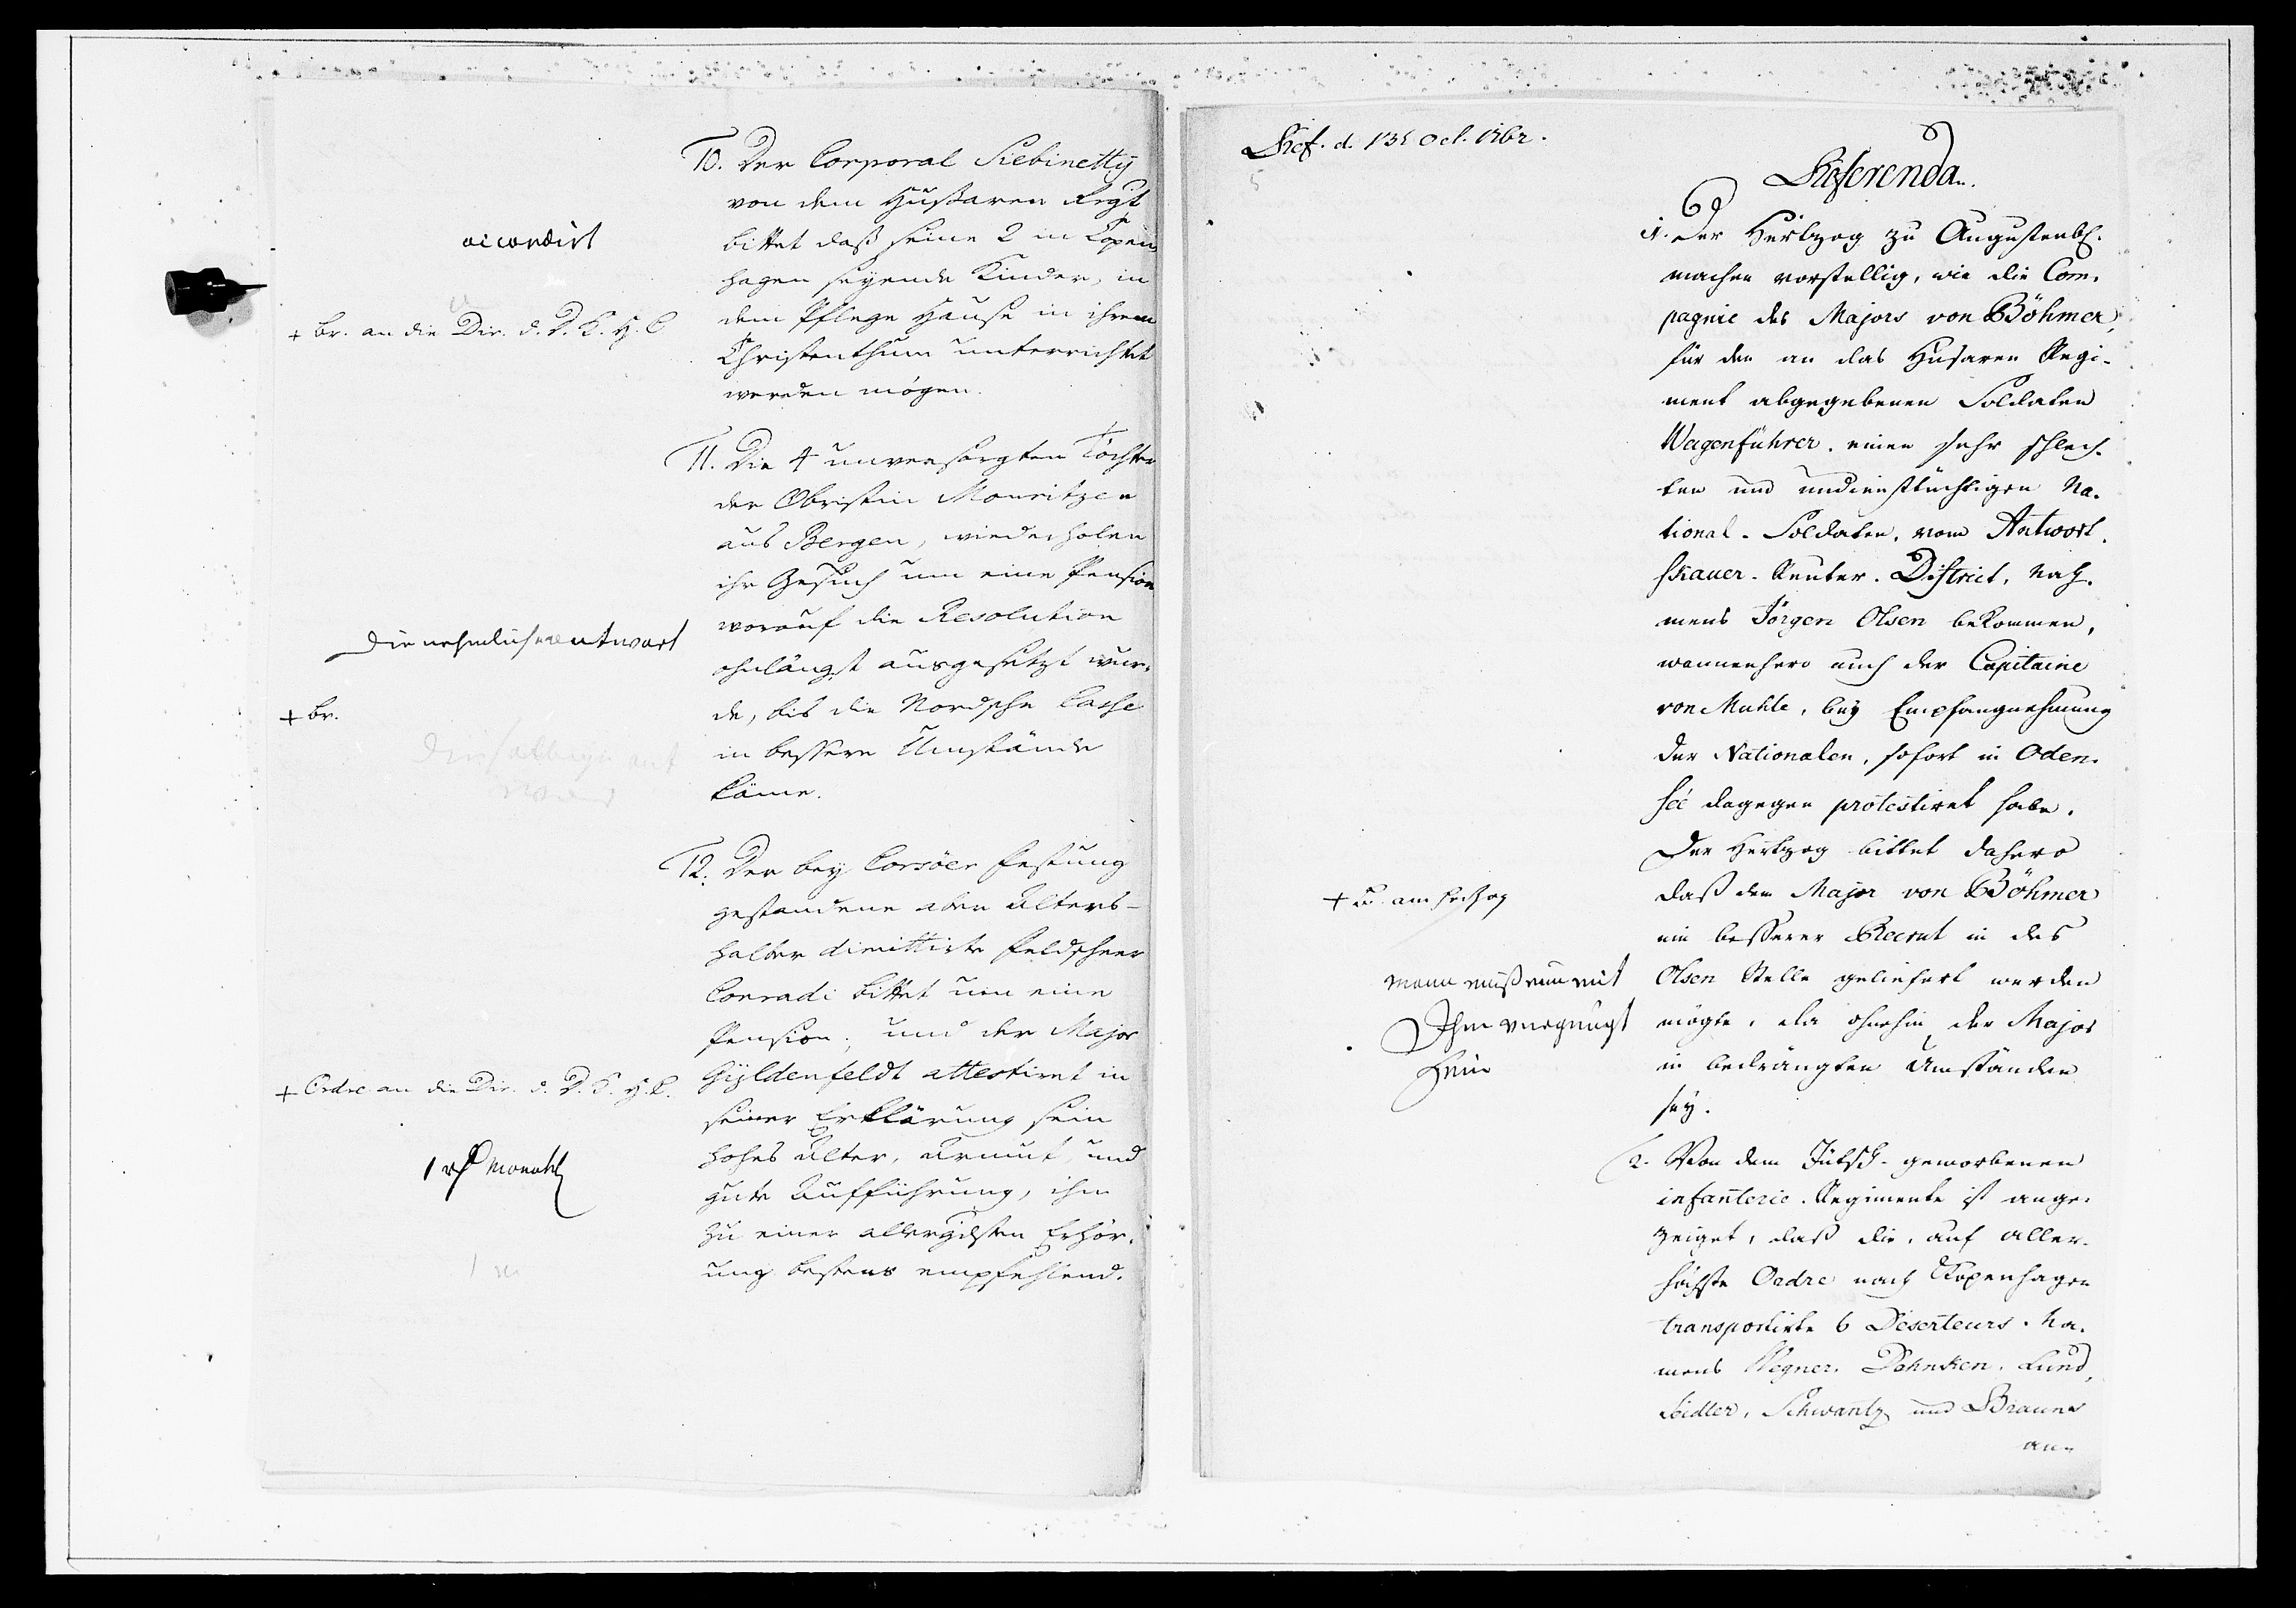 10. Der Corporal Siebinetty
von dem Hußaren Regt
bittet daß seine 2 in Copen
hagen seyende Kinder, in
dem Pflege Hause in ihrem
Christenthum unterrichtet
werden mögen.
accordirt
+ br. an die Dir. d. D. K. H. C
11. Die 4 unversorgten Töchter
der Obristin Mouritzen
aus Bergen, wiederholen
ihr Gesuch um eine Pension
worauf die Resolution
ohnlängst ausgesetzt wur-
de, bis die Nordsche Casse
in bessere Umstände
käme.
die nehmliche antwort
+ br.
12. Der bey Corsöer Festung
gestandene aber Alters-
halber dimittirte Feldscheer
Conradi bittet um eine
Pension, und der Major
Gyldenfeldt attestiret in
seiner Erklärung sein
hohes Alter, Armut und
gute Aufführung, ihn
zu einer allergdsten Erhör-
ung bestens empfehlend.
+ Ordre an die Dir. d. D. K. H. C.
1 rd Monatl
Ref. d. 13t Oct. 1762.
Referenda.
1. Der Hertzog zu Augustenb.
machen vorstellig, wie die Com-
pagnie des Majors von Böhmer,
für den an das Husaren Regi-
ment abgegebenen Soldaten
Wagenführer, einen sehr schlech-
ten und undiensttüchtigen Na-
tional-Soldaten, vom Antwort-
skauer-Reuter-District, Nah-
mens Jörgen Olsen bekommen,
wannenhero auch der Capitaine
von Muhle, bey Empfangnehmung
der Nationalen, sofort in Oden-
seé dagegen protestiret habe.
Der Hertzog bittet dahero
daß dem Major von Böhmer
ein besserer Recrut in des
Olsen Stelle geliefert werden
mögte, da ohnehin der Major
in bedrängten Umständen
sey.
+ br. am Hertzog
mann muß nun mit
Ihm vergnügt
sein
2. Von dem Jütsch-geworbenen
infanterie-Regimente ist ange-
zeiget, daß die, auf aller-
höchste Ordre nach Copenhagen
transportirte 6 Deserteurs, Na-
mens Wegner, Dehnken, Lund,
Seidler, Schwantz und Brauns
an-